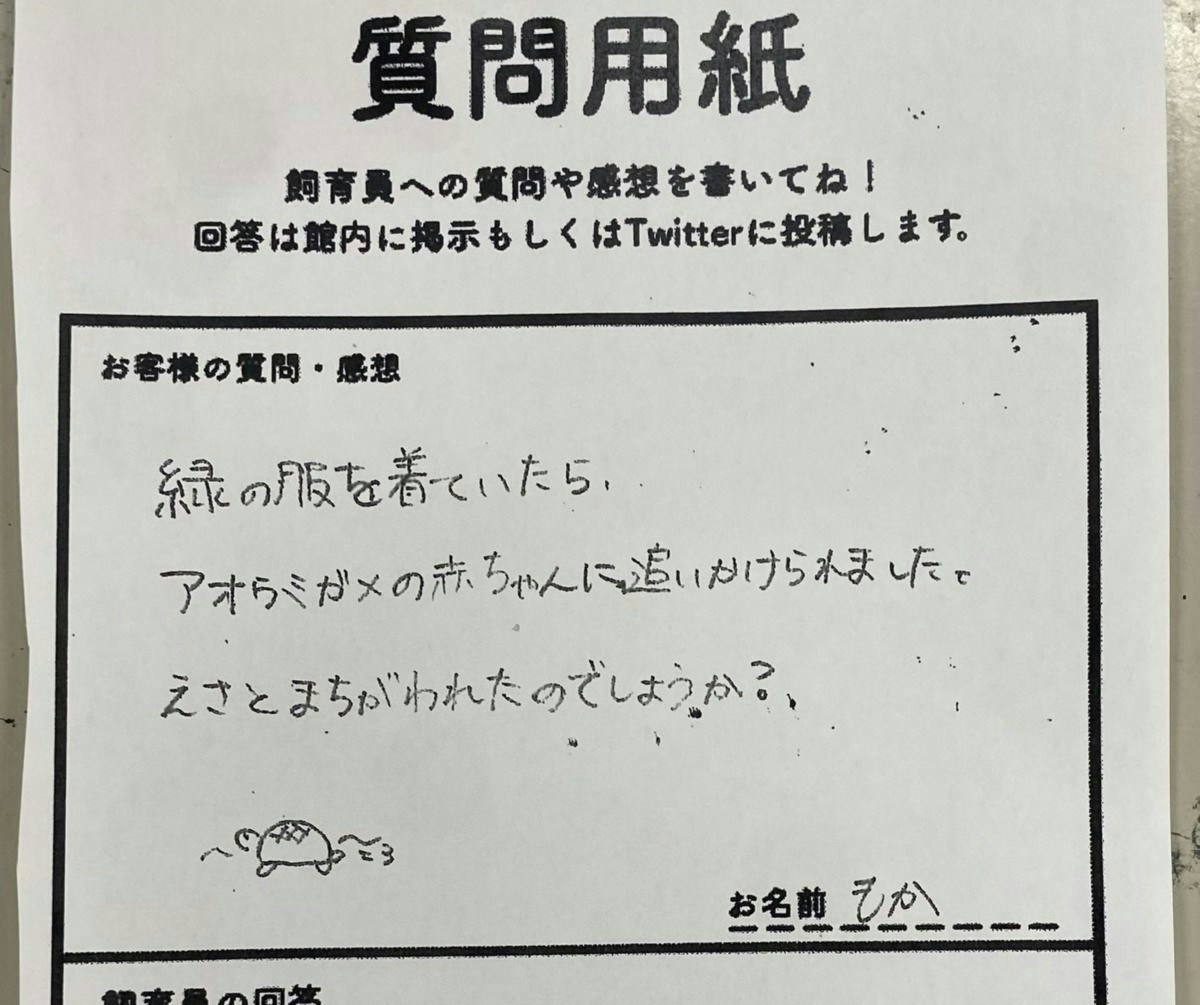 質問用紙
飼育員への質問や感想を書いてね！
回答は館内に掲示もしくはTwitterに投稿します。
お客様の質問・感想
緑の服を着ていたら、
アオウミガメの赤ちゃんに追いかけられました。
えさとまちがわれたのでしょうか？
お名前 もか
飼育員の回答